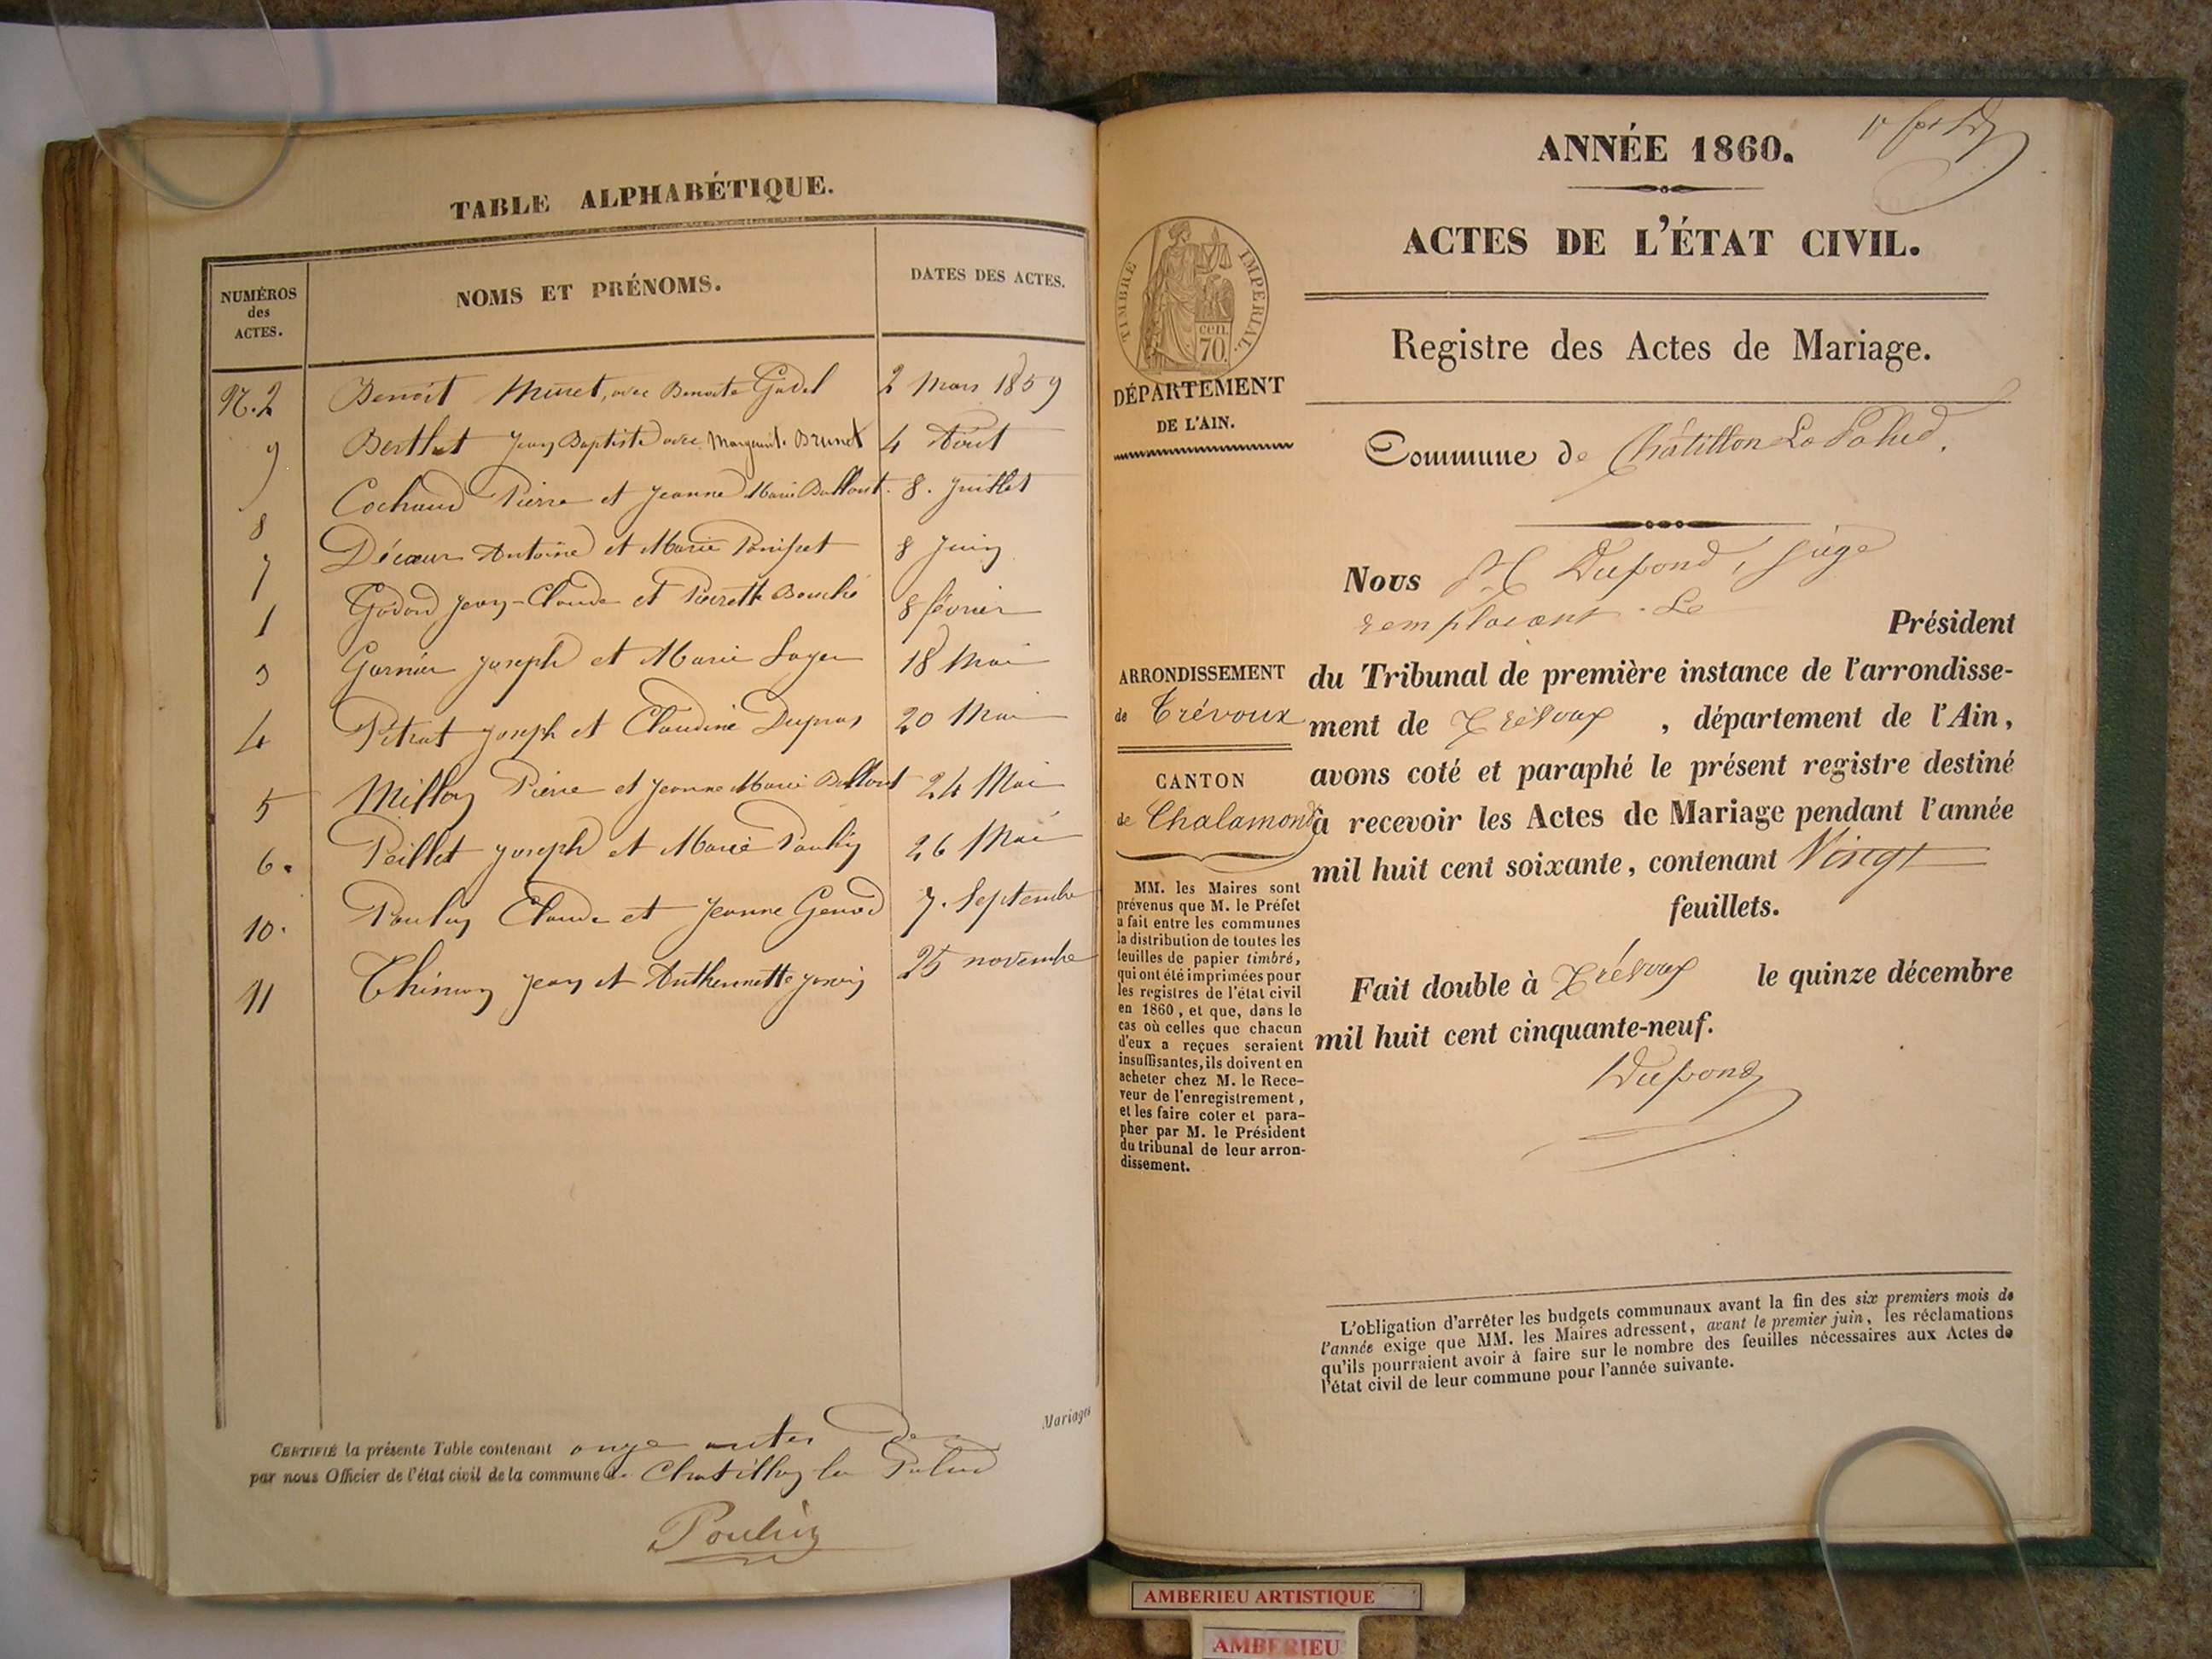 TABLE ALPHABÉTIQUE.
NUMÉROS des ACTES. NOMS ET PRÉNOMS. DATES DES ACTES.
N.2 Benoit Minet, avec Benoite Godel 2 Mars 1859
9 Berthet Jean Baptiste avec Marguerite Brunet 4 Août
8 Cochaud Pierre et Jeanne Marie 8. Juillet
7 Décœur Antoine et Marie 8 Juin
1 Jean-Claude et Pierrette Bouché 8 février
3 Garnier Joseph et Marie 18 Mai
4 Pétrat Joseph et Claudine Dupras 20 Mai
5 Millon Pierre et Jeanne Marie 24 Mai
6. Peillet Joseph et Marie Poulin 26 Mai
10. Poulin Claude et Jeanne 7. Septembre
11 Jean et 25 novembre
Mariages
CERTIFIÉ la présente Table contenant onze actes
par nous Officier de l'état civil de la commune de Chatillon la Palud
Poulin
ANNÉE 1860.
ACTES DE L'ÉTAT CIVIL.
Registre des Actes de Mariage.
Commune de Châtillon La Palud.
TIMBRE IMPERIAL.
cen. 70.
DÉPARTEMENT
DE L'AIN.
ARRONDISSEMENT
de Trévoux
CANTON
de Chalamont
MM. les Maires sont
prévenus que M. le Préfet
a fait entre les communes
la distribution de toutes les
feuilles de papier timbré,
qui ont été imprimées pour
les registres de l'état civil
en 1860, et que, dans le
cas où celles que chacun
d'eux a reçues seraient
insuffisantes, ils doivent en
acheter chez M. le Rece-
veur de l'enregistrement,
et les faire coter et para-
pher par M. le Président
du tribunal de leur arron-
dissement.
Nous Dupond, juge
remplaçant Le Président
du Tribunal de première instance de l'arrondisse-
ment de Trévoux, département de l'Ain,
avons coté et paraphé le présent registre destiné
à recevoir les Actes de Mariage pendant l'année
mil huit cent soixante, contenant Vingt
feuillets.
Fait double à Trévoux le quinze décembre
mil huit cent cinquante-neuf.
Dupond
L'obligation d'arrêter les budgets communaux avant la fin des six premiers mois de
l'année exige que MM. les Maires adressent, avant le premier juin, les réclamations
qu'ils pourraient avoir à faire sur le nombre des feuilles nécessaires aux Actes de
l'état civil de leur commune pour l'année suivante.
AMBERIEU ARTISTIQUE
AMBERIEU